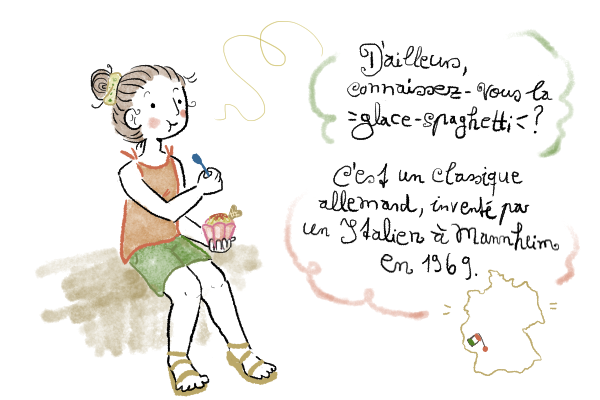 D'ailleurs,
connaissez-vous la
=glace-spaghetti< ?
C'est un classique
allemand, inventé par
un Italien à Mannheim
en 1969.